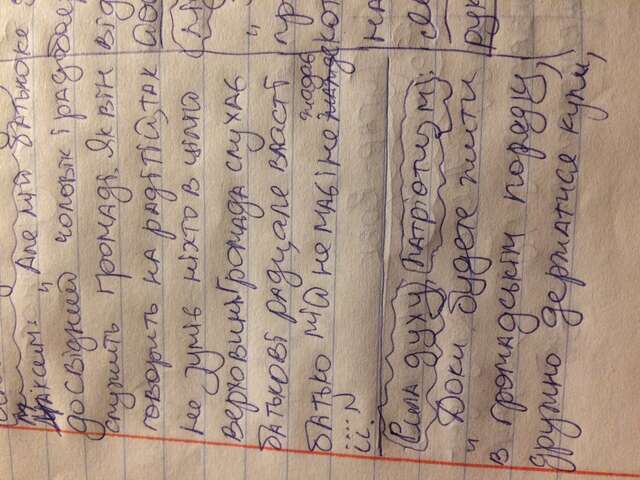 Максим: „Але мій батько же
досвідний чоловік і рад
служить громаді. Як він від
говорить на радітій, так
не зуміє ніхто в цілій
верховині. Громада слухає
батькові ради, але власті
батько мій не має і не жадає
її."
Сила духу, патріотизм:
„Доки будете жити
в громадськім порядку,
дружно держатися купи,